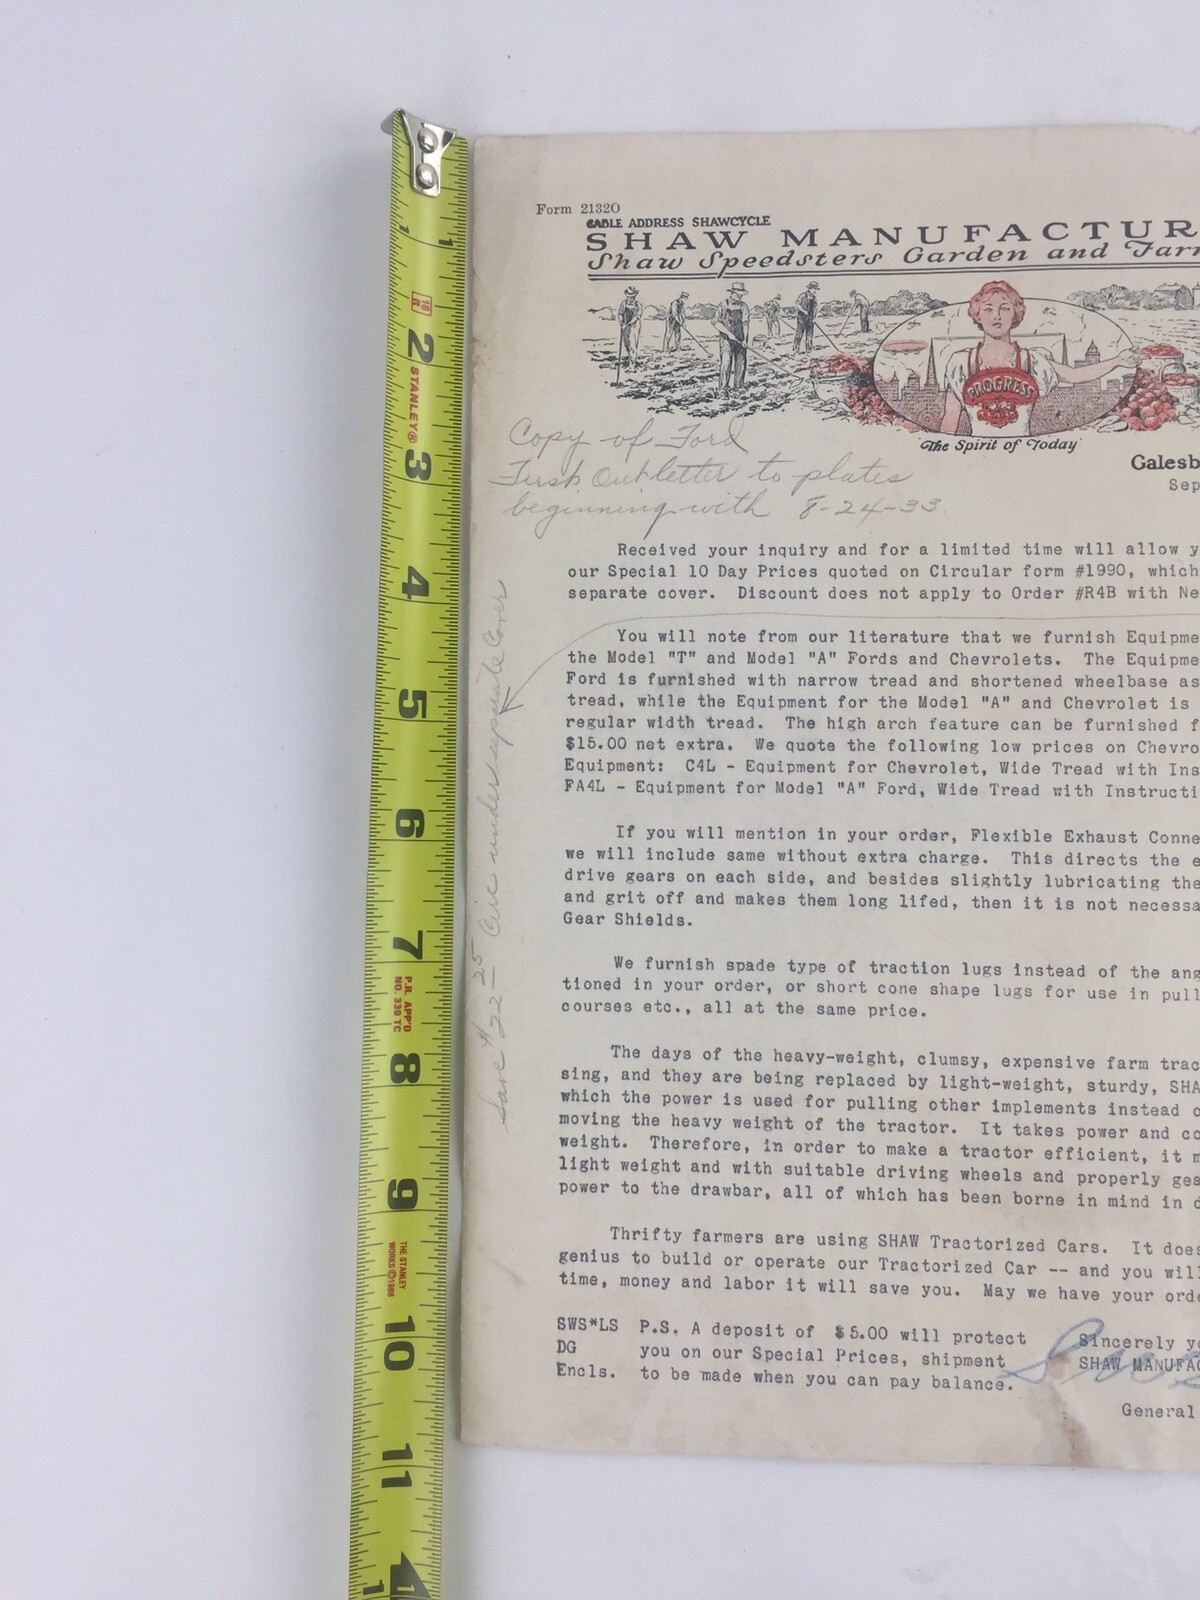 Form 21320
CABLE ADDRESS SHAWCYCLE
SHAW MANUFACTUR
Shaw Speedsters Garden and Farm
PROGRESS
"The Spirit of Today"
Galesb
Sep
Copy of Ford
First Out letter to plates
beginning with 8-24-33.
Received your inquiry and for a limited time will allow y
our Special 10 Day Prices quoted on Circular form #1990, which
separate cover. Discount does not apply to Order #R4B with Ne
You will note from our literature that we furnish Equipme
the Model "T" and Model "A" Fords and Chevrolets. The Equipme
Ford is furnished with narrow tread and shortened wheelbase as
tread, while the Equipment for the Model "A" and Chevrolet is
regular width tread. The high arch feature can be furnished f
$15.00 net extra. We quote the following low prices on Chevro
Equipment: C4L - Equipment for Chevrolet, Wide Tread with Ins
FA4L - Equipment for Model "A" Ford, Wide Tread with Instructi
If you will mention in your order, Flexible Exhaust Conne
we will include same without extra charge. This directs the e
drive gears on each side, and besides slightly lubricating the
and grit off and makes them long lifed, then it is not necessa
Gear Shields.
We furnish spade type of traction lugs instead of the ang
tioned in your order, or short cone shape lugs for use in pull
courses etc., all at the same price.
The days of the heavy-weight, clumsy, expensive farm trac
sing, and they are being replaced by light-weight, sturdy, SHA
which the power is used for pulling other implements instead o
moving the heavy weight of the tractor. It takes power and co
weight. Therefore, in order to make a tractor efficient, it m
light weight and with suitable driving wheels and properly gea
power to the drawbar, all of which has been borne in mind in d
Thrifty farmers are using SHAW Tractorized Cars. It does
genius to build or operate our Tractorized Car -- and you will
time, money and labor it will save you. May we have your orde
SWS*LS P.S. A deposit of $5.00 will protect
DG you on our Special Prices, shipment
Encls. to be made when you can pay balance.
Sincerely yo
SHAW MANUFAC
General
Save $22 25 Circ under separate Cover
1 1
16 ft
2
STANLEY®
3
4
5
6
7
P.R. APP'D
NO. 339 TC
8
9
THE STANLEY
WORKS ©1988
10
11
1 1